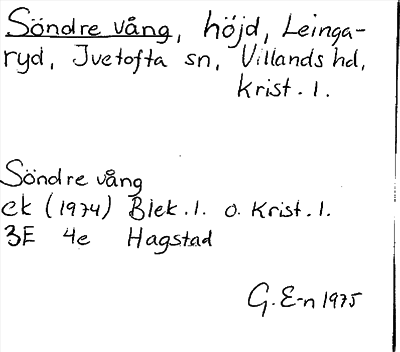 Söndre vång, höjd, Leinga-
ryd, Ivetofta sn, Villands hd,
Krist. l.
Söndre vång
ek (1974) Blek. l. o. Krist. l.
3E 4e Hagstad
G. E-n 1975